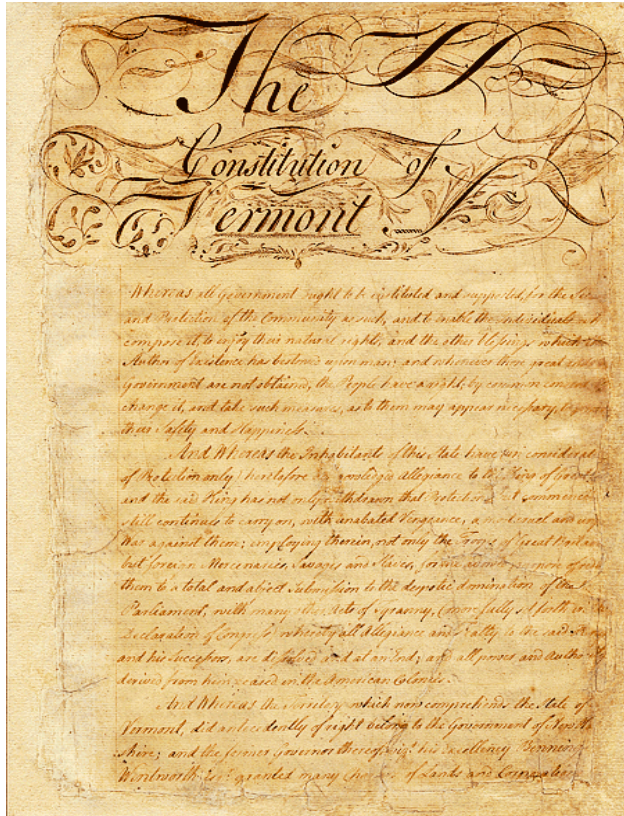 The
Constitution of
Vermont
Whereas all Government ought to be instituted and supported, for the
and Protection of the Community as such, and to enable the individuals
compose it, to enjoy their natural rights, and the other blessings which the
Author of Existence has bestowed upon man; and whenever those great ends of
Government are not obtained, the People have a right, by common consent to
change it, and take such measures, as to them may appear necessary to promote
their Safety and Happiness.
And Whereas the Inhabitants of this State have (in considerat
of Protection only) heretofore acknowledged Allegiance to the King of Great
and the said King has not only withdrawn that Protection but commenced
still continues to carry on, with unabated Vengeance, a most cruel and unj
War against them; employing therein, not only the Troops of Great Britain
but foreign Mercenaries, Savages and Slaves, for the avowed purpose of redu
them to a total and abject Submission to the despotic domination of the
Parliament, with many other Acts of Tyranny, (more fully set forth in the
Declaration of Congress) whereby all Allegiance and Fealty to the said King
and his Successors, are dissolved and at an End; and all power and Authority
derived from him, ceased in the American Colonies.
And Whereas the Territory which now comprehends the State of
Vermont, did antecedently of right belong to the Government of New H
shire; and the former Governor thereof, viz.t his Excellency Benning
Wentworth Esq.r granted many Charters of Lands and Corporations